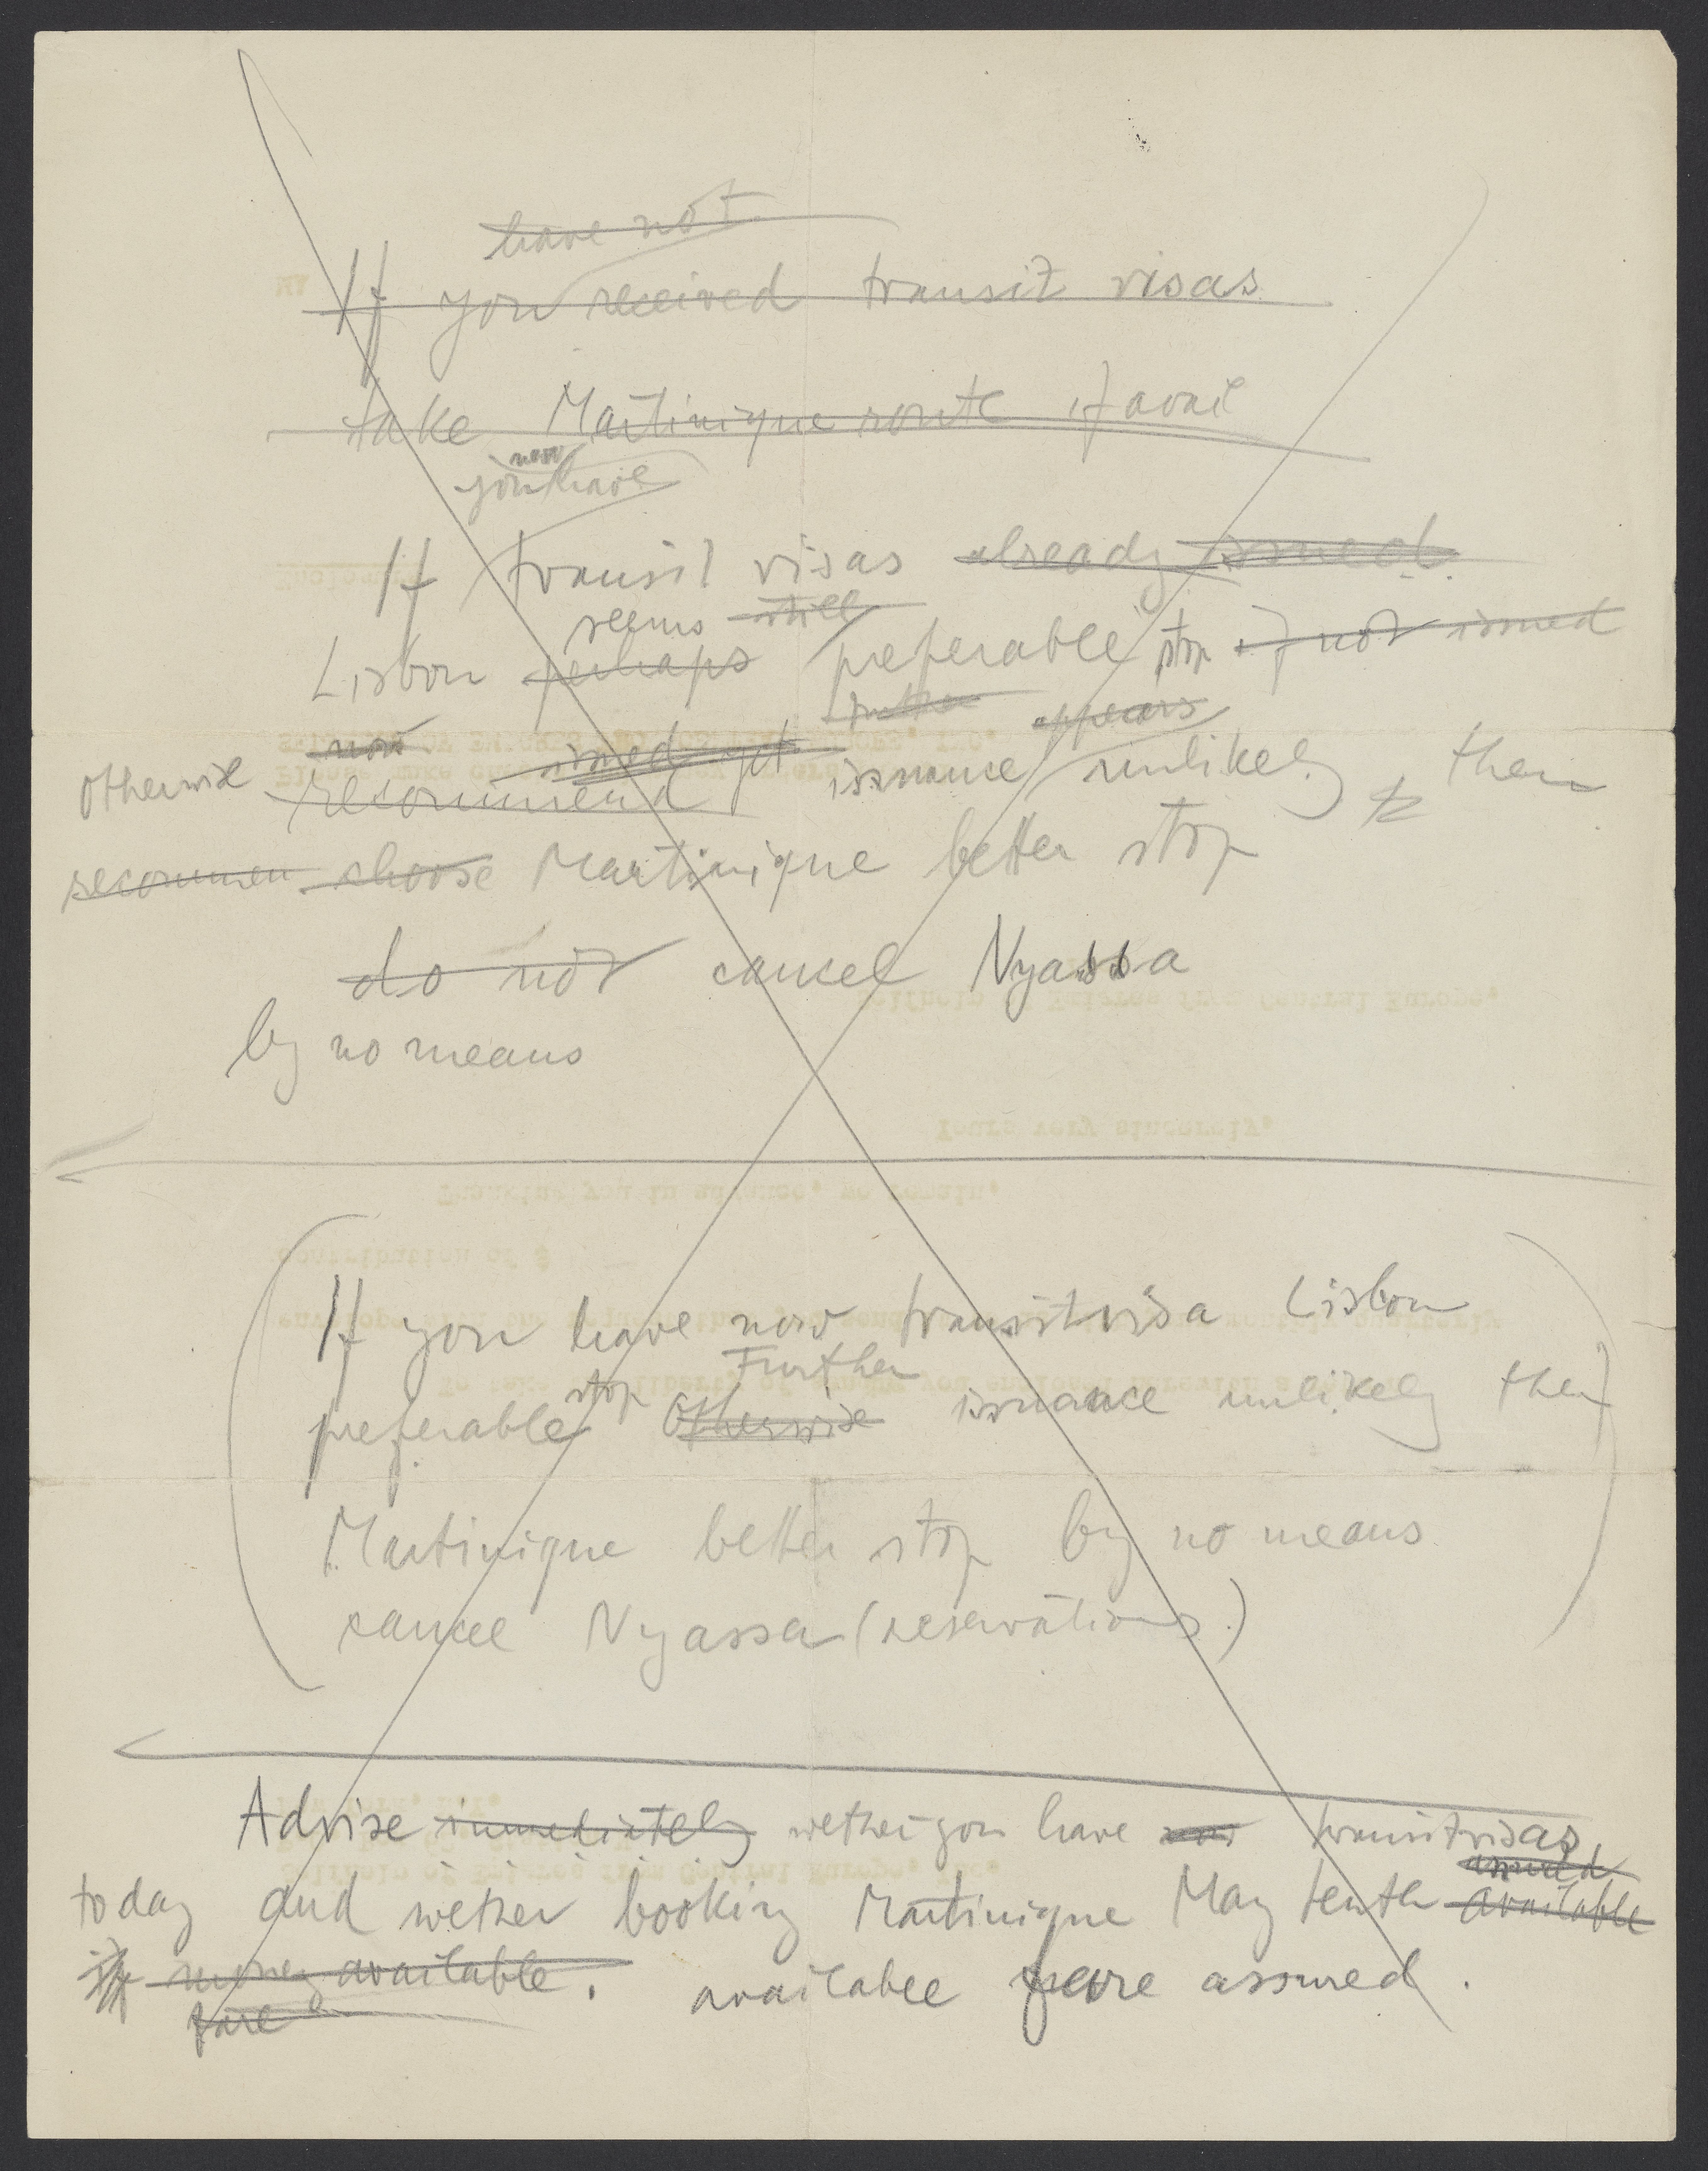 have not
If you received transit visas
take Martinique route if avail
now
you have
If transit visas already issued
seems still
Lisbon perhaps preferable stop if not issued
further appears
now issued yet
Otherwise recommend issuance unlikely then
recommen choose Martinique better stop
do not cancel Nyassa
by no means
If you have now transitvisa Lisbon
Further
preferable stop Otherwise issuance unlikely then
Martinique better stop by no means
cancel Nyassa (reservations)
Advise immediately wether you have now transitvisas
assured
today and wether booking Martinique May tenth available
if money available. availabel fare assured.
fare